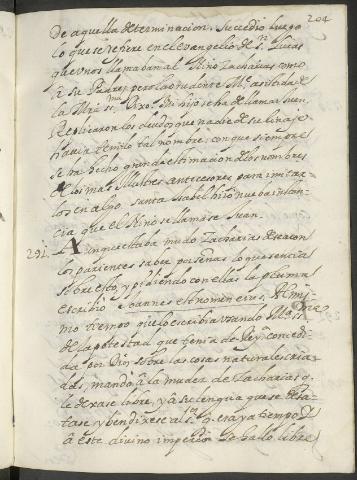 204
De aquella determinacion. Sucedio luego
lo que se refiere en el evangelio de S.n Lucas
que unos llamaban al Niño Zacharias como
a su Padre; pero la prudente M.e asistida de
la M.re ss.ma Dixo. Mi hijo se ha de llamar Juan.
Replicaron los deudos que nadie de su linaje
havia tenido tal nombre; con que siempre
se ha hecho grande estimacion de los nombres
de los mas Illustres antecesores para imitar-
los en algo. santa Isabel hiço nueva instan-
cia que el Niño se llamase Juan.
291. Aunque estaba mudo Zacharias desearon
los parientes saber por señas lo que sentia
sobre esto, y pidiendo con ellas la pluma
escribio Joannes est nomen eius. Al mis-
mo tiempo que lo escribia usando M.a ss.ma
de la potestad que tenia de Reyna concedi-
da por Dios sobre las cosas naturales cria-
das, mandó a la mudez de Zacharias q.
le dexase libre, y a su lengua que se desa-
tase y bendixese al s.or q. era ya tiempo
a este divino imperio se hallo libre